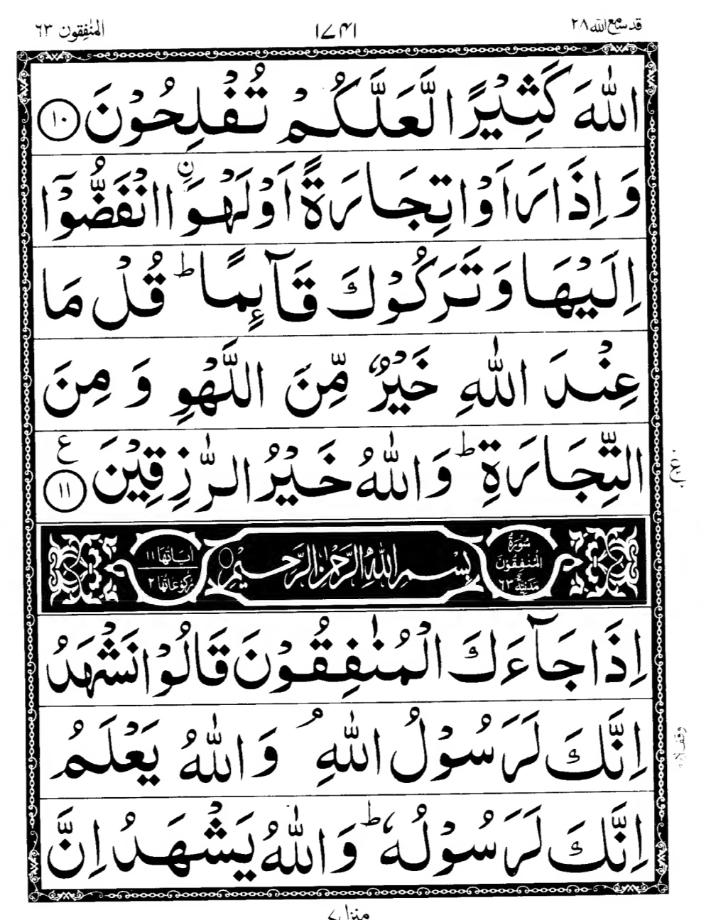 قد سمع الله ٢٨
١٧٤١
المنٰفقون ٦٣
اللّٰهَ كَثِيْرًا لَّعَلَّكُمْ تُفْلِحُوْنَ ١٠
وَ اِذَا رَاَوْا تِجَارَةً اَوْ لَهْوَا ۨ انْفَضُّوْۤا
اِلَيْهَا وَ تَرَكُوْكَ قَآىِٕمًا ؕ قُلْ مَا
عِنْدَ اللّٰهِ خَيْرٌ مِّنَ اللَّهْوِ وَ مِنَ
التِّجَارَةِ ؕ وَ اللّٰهُ خَيْرُ الرّٰزِقِيْنَ ١١ ع
سُوْرَةُ الْمُنٰفِقُوْنَ مَدَنِيَّةٌ ٦٣
بِسْمِ اللّٰهِ الرَّحْمٰنِ الرَّحِيْمِ
اٰيَاتُهَا ١١
رُكُوْعَاتُهَا ٢
اِذَا جَآءَكَ الْمُنٰفِقُوْنَ قَالُوْا نَشْهَدُ
اِنَّكَ لَرَسُوْلُ اللّٰهِ ۘ وَ اللّٰهُ يَعْلَمُ
اِنَّكَ لَرَسُوْلُهٗ ؕ وَ اللّٰهُ يَشْهَدُ اِنَّ
منزل ٧